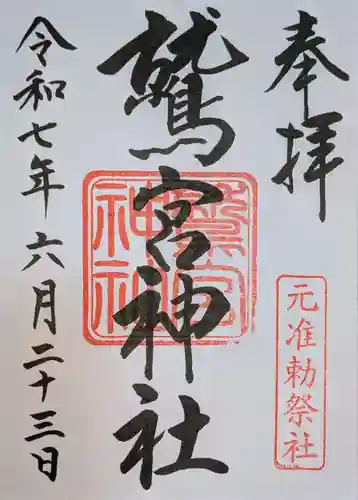 奉拝
元准勅祭社
鷲宮神社
鷲宮
神社
令和七年六月二十三日